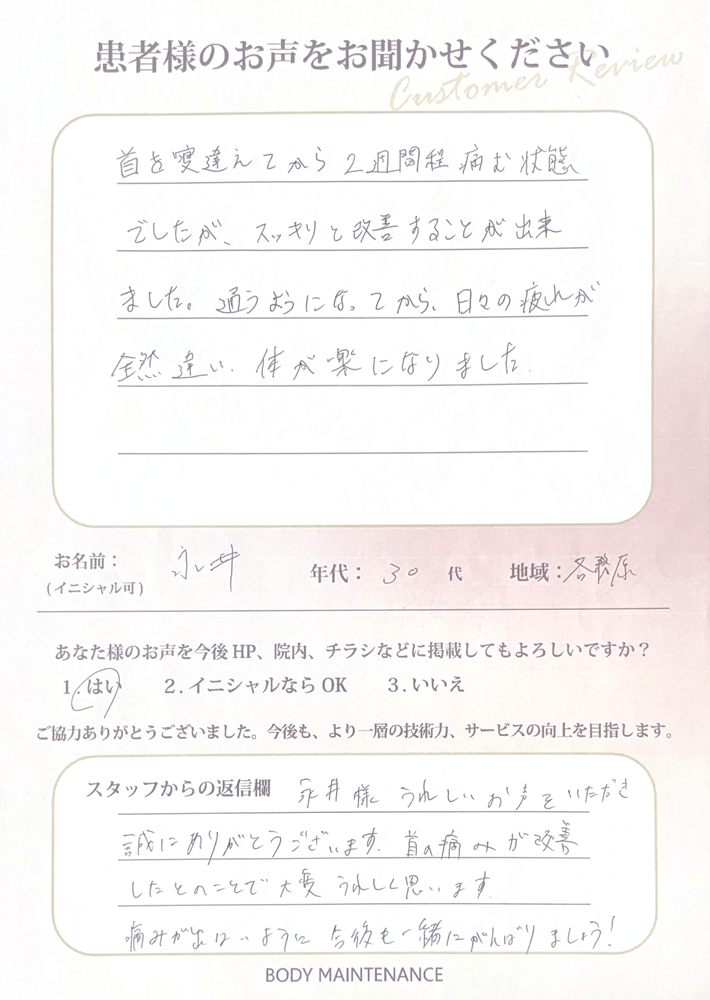 患者様のお声をお聞かせください
Customer Review
首を変違えてから2週間程痛む状態
でしたが、スッキリと改善することが出来
ました。通うようになってから、日々の疲れが
全然違い、体が楽になりました。
お名前：
(イニシャル可)
永井
年代：30代
地域：各務原
あなた様のお声を今後HP、院内、チラシなどに掲載してもよろしいですか？
1.はい 2.イニシャルならOK 3.いいえ
ご協力ありがとうございました。今後も、より一層の技術力、サービスの向上を目指します。
スタッフからの返信欄 永井様 うれしいお声をいただき
誠にありがとうございます。首の痛みが改善
したとのことで大変うれしく思います。
痛みが出ないように今後も一緒にがんばりましょう！
BODY MAINTENANCE